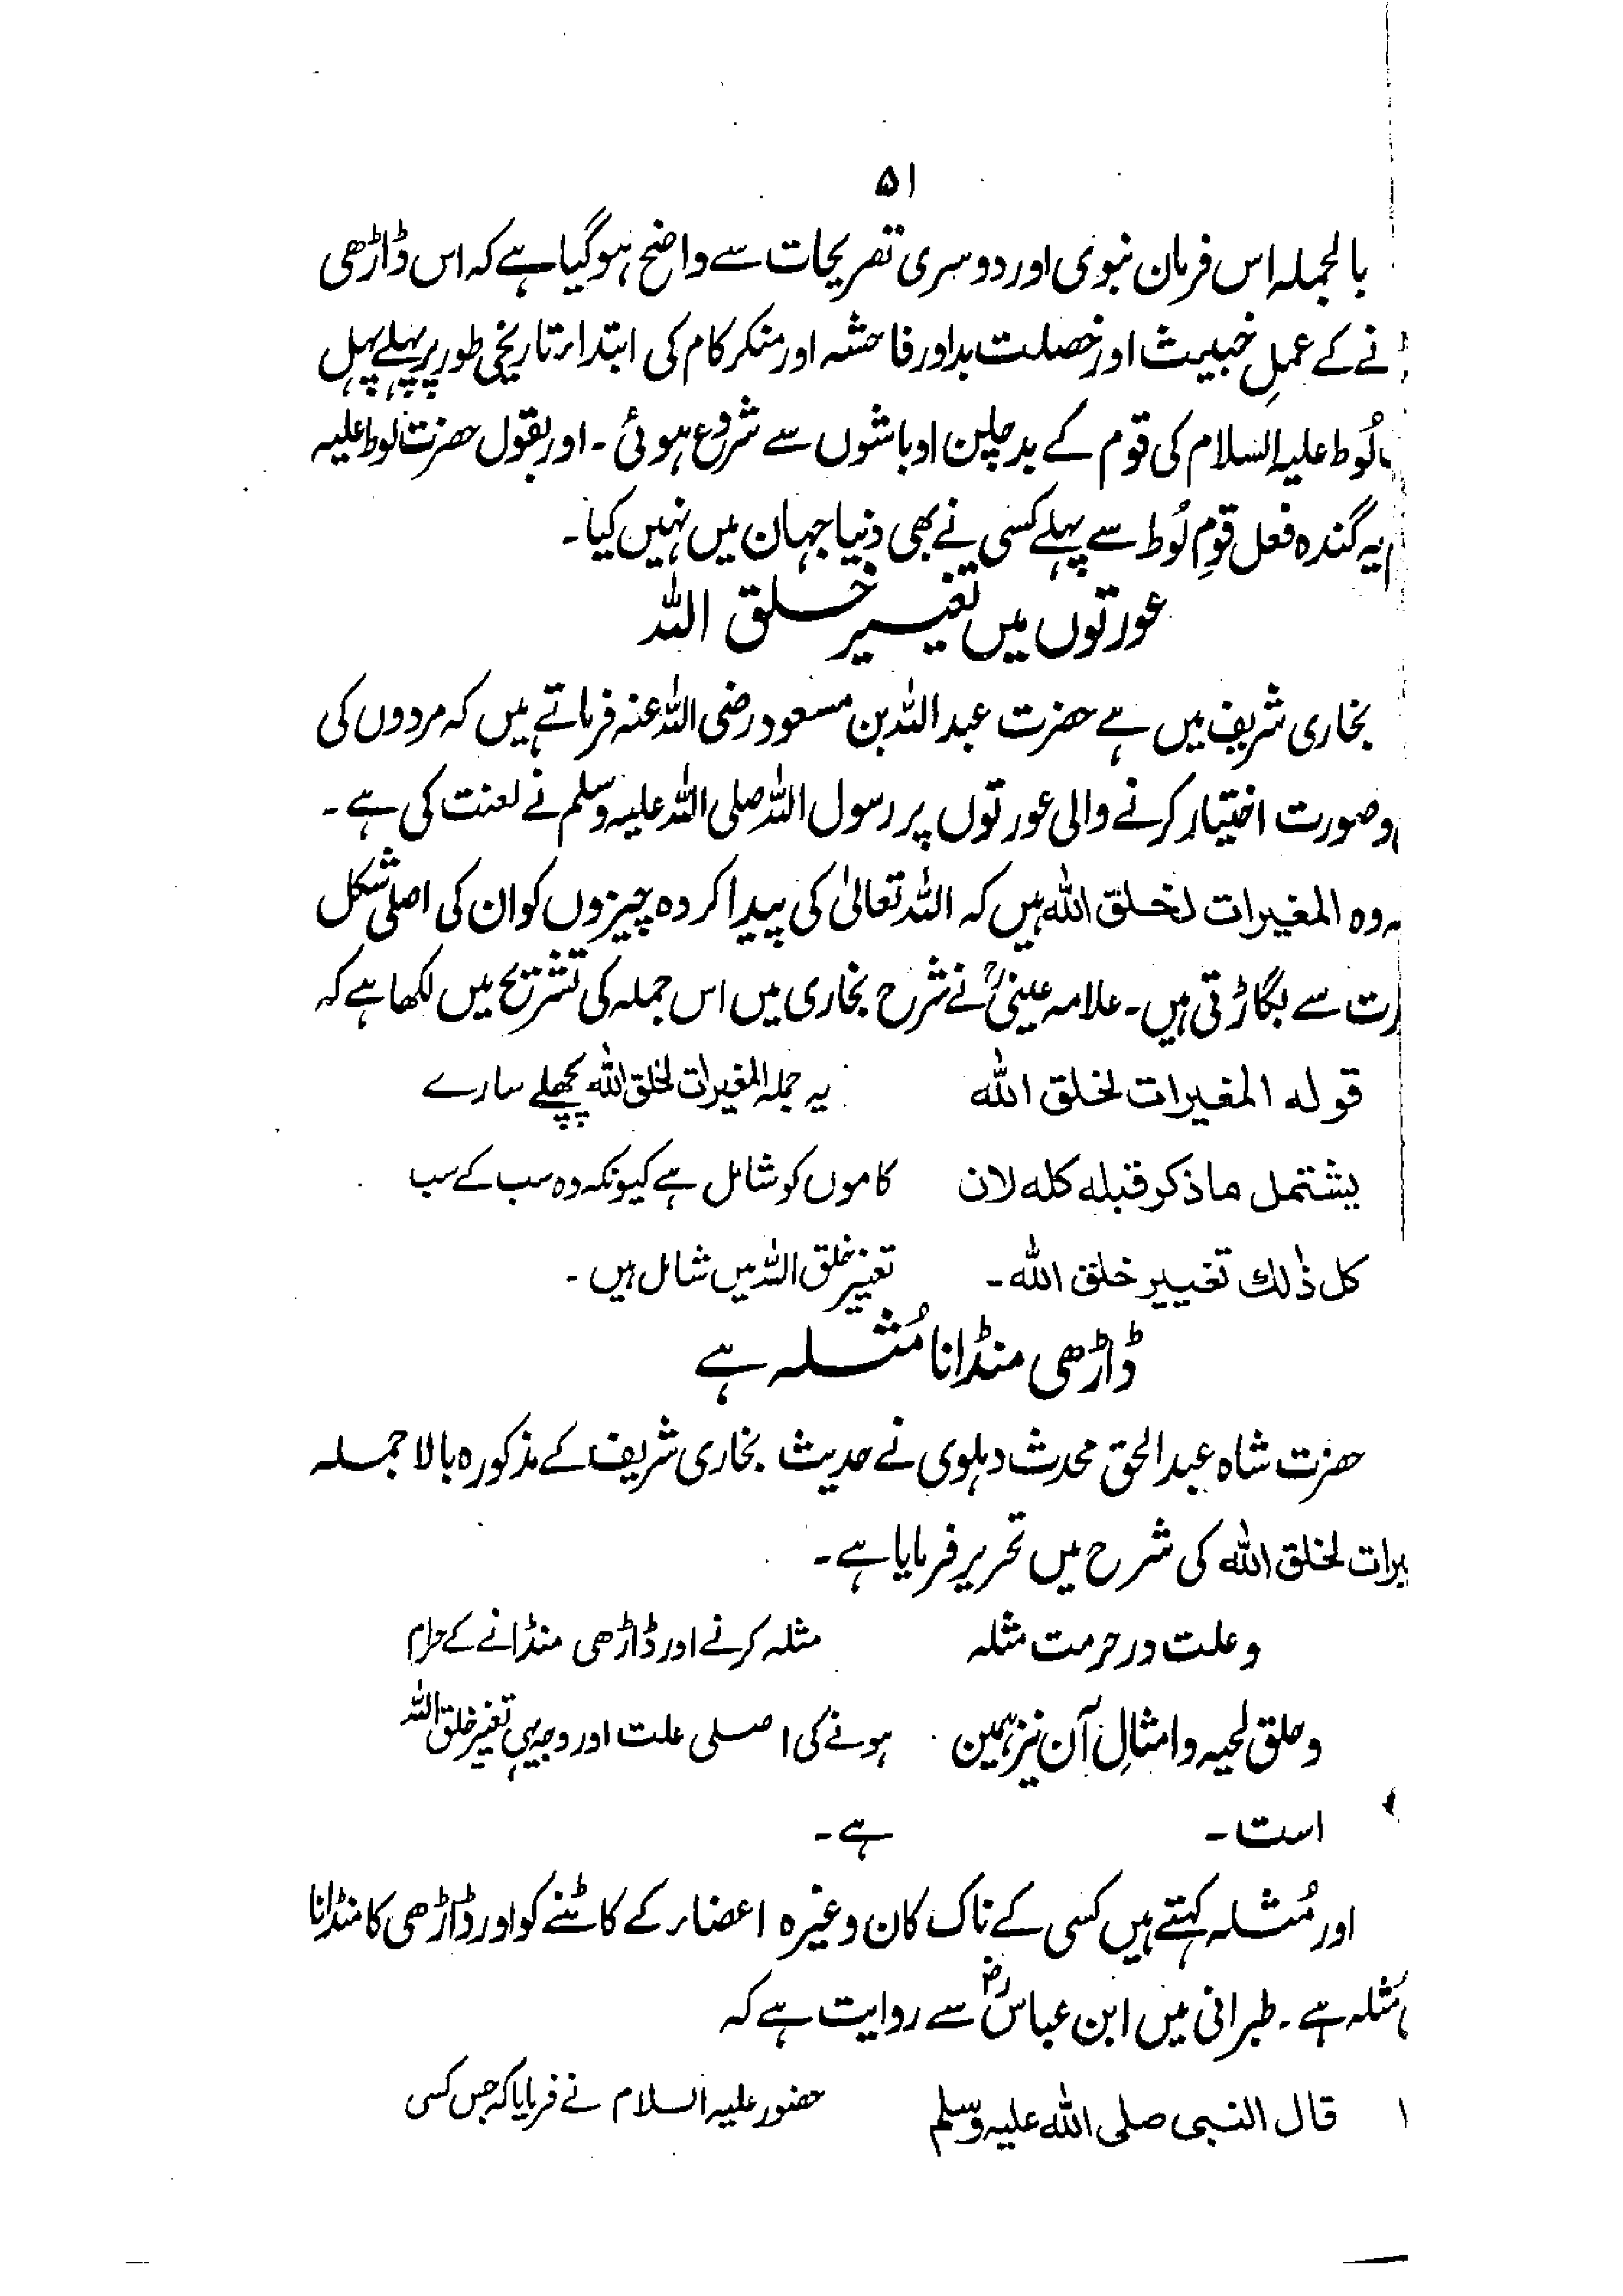 ۵۱
بالجملہ اس فرمان نبوی اور دوسری تصریحات سے واضح ہوگیا ہے کہ اس ڈاڑھی
نے کے عملِ خبیث اور خصلت بد اور فاحشہ اور منکر کام کی ابتداء تاریخی طور پر پہلے پہل
لُوط علیہ السلام کی قوم کے بدچلن اوباشوں سے شروع ہوئی ۔ اور بقول حضرت لوط علیہ
یہ گندہ فعل قومِ لُوط سے پہلے کسی نے بھی دنیا جہان میں نہیں کیا ۔
عورتوں میں تغییر خلق اللہ
بخاری شریف میں ہے حضرت عبداللہ بن مسعود رضی اللہ عنہ فرماتے ہیں کہ مردوں کی
وصورت اختیار کرنے والی عورتوں پر رسول اللہ صلی اللہ علیہ وسلم نے لعنت کی ہے ۔
وہ المغیرات لخلق اللہ ہیں کہ اللہ تعالیٰ کی پیدا کردہ چیزوں کو ان کی اصلی شکل
رت سے بگاڑتی ہیں ۔ علامہ عینیؒ نے شرح بخاری میں اس جملہ کی تشریح میں لکھا ہے کہ
قوله المغیرات لخلق الله یہ جملہ المغیرات لخلق اللہ پچھلے سارے
یشتمل ما ذکر قبله کله لان کاموں کو شامل ہے کیونکہ وہ سب کے سب
کل ذٰلك تغییر خلق الله ۔ تغییر خلق اللہ میں شامل ہیں ۔
ڈاڑھی منڈانا مُثلہ ہے
حضرت شاہ عبدالحق محدث دہلوی نے حدیث بخاری شریف کے مذکورہ بالا جملہ
یرات لخلق اللہ کی شرح میں تحریر فرمایا ہے ۔
وعلت در حرمت مثلہ مثلہ کرنے اور ڈاڑھی منڈانے کے حرام
وحلق لحیہ وامثالِ آن نیز ہمین ہونے کی اصلی علت اور وجہ یہی تغییر خلق اللہ
است ۔ ہے ۔
اور مُثلہ کہتے ہیں کسی کے ناک کان وغیرہ اعضاء کے کاٹنے کو اور ڈاڑھی کا منڈانا
مُثلہ ہے ۔ طبرانی میں ابن عباسؓ سے روایت ہے کہ
قال النبی صلی الله علیه وسلم حضور علیہ السلام نے فرمایا کہ جس کسی